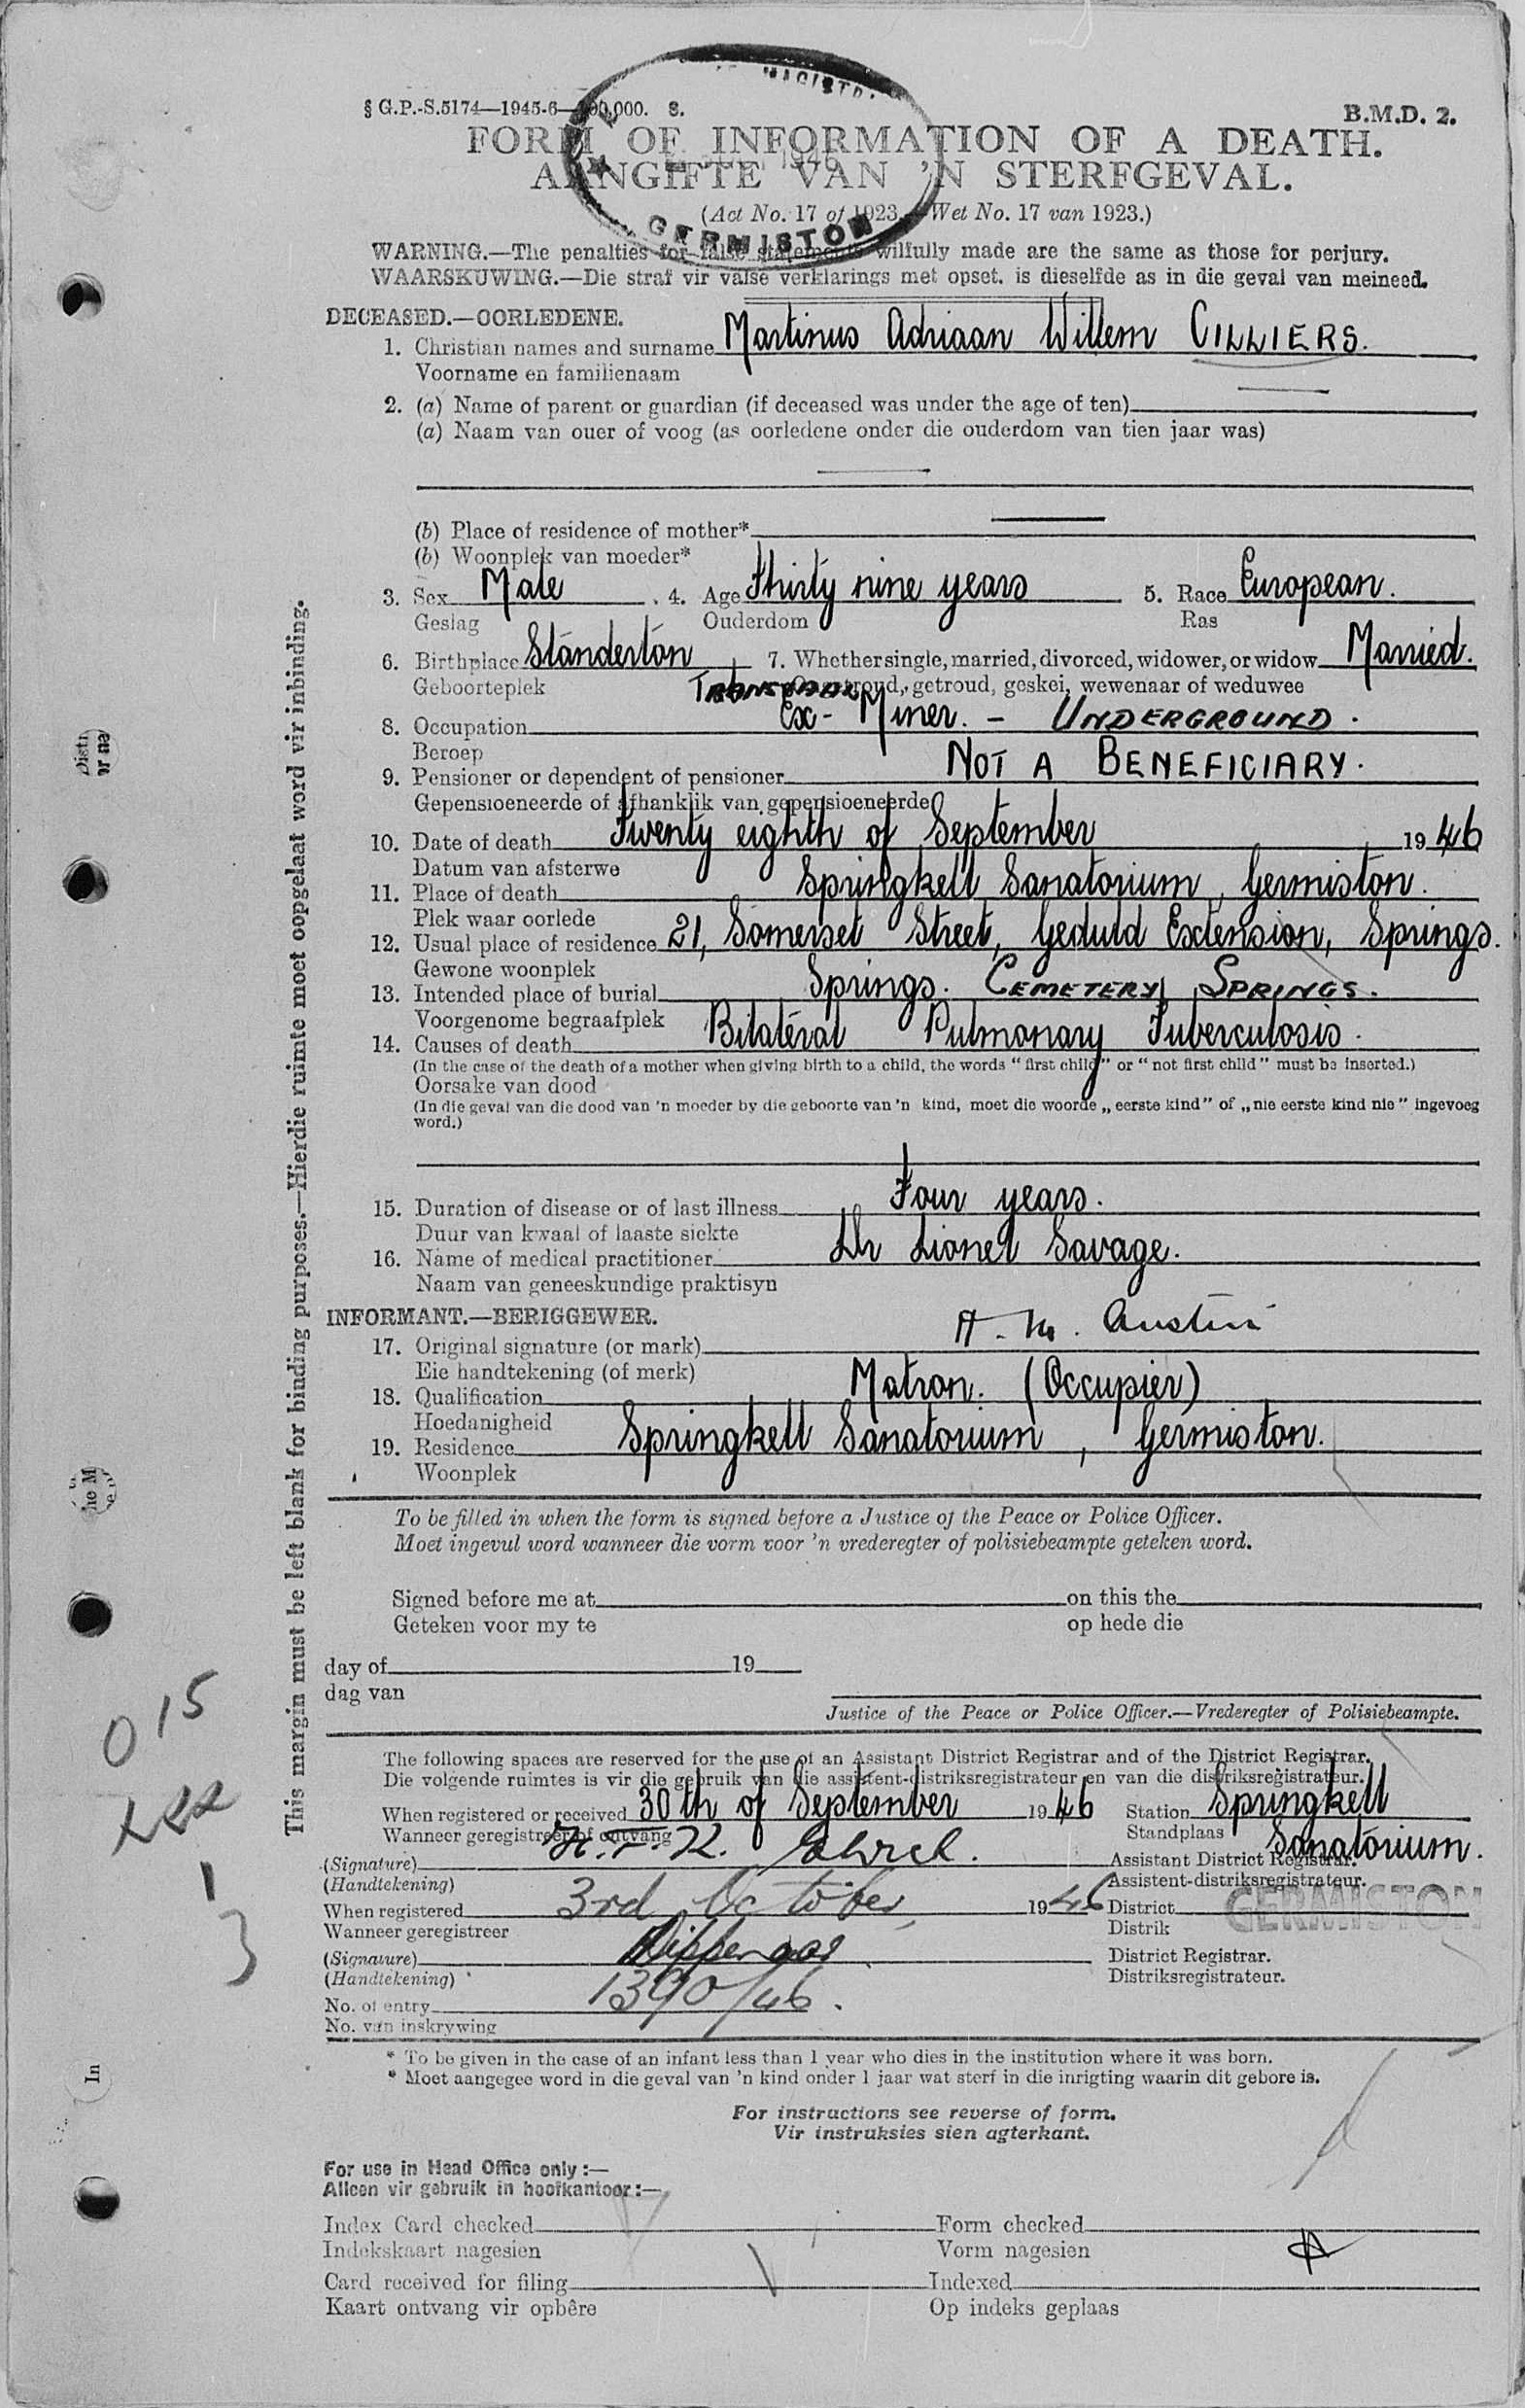 § G.P.-S.5174—1945-6—100,000. S.
B.M.D. 2.
FORM OF INFORMATION OF A DEATH.
AANGIFTE VAN 'N STERFGEVAL.
(Act No. 17 of 1923.—Wet No. 17 van 1923.)
GERMISTON
WARNING.—The penalties for false statements wilfully made are the same as those for perjury.
WAARSKUWING.—Die straf vir valse verklarings met opset. is dieselfde as in die geval van meineed.
DECEASED.—OORLEDENE.
1. Christian names and surname Martinus Adriaan Willem CILLIERS.
Voorname en familienaam
2. (a) Name of parent or guardian (if deceased was under the age of ten)
(a) Naam van ouer of voog (as oorledene onder die ouderdom van tien jaar was)
(b) Place of residence of mother*
(b) Woonplek van moeder*
3. Sex Male 4. Age Thirty nine years 5. Race European.
Geslag Ouderdom Ras
6. Birthplace Standerton 7. Whether single, married, divorced, widower, or widow Married.
Geboorteplek Transvaal Ongetroud, getroud, geskei, wewenaar of weduwee
8. Occupation Ex-Miner. - UNDERGROUND.
Beroep
9. Pensioner or dependent of pensioner NOT A BENEFICIARY.
Gepensioeneerde of afhanklik van gepensioeneerde
10. Date of death Twenty eighth of September 1946
Datum van afsterwe
11. Place of death Springkell Sanatorium, Germiston.
Plek waar oorlede
12. Usual place of residence 21, Somerset Street, Geduld Extension, Springs.
Gewone woonplek
13. Intended place of burial Springs. CEMETERY, SPRINGS.
Voorgenome begraafplek
14. Causes of death Bilateral Pulmonary Tuberculosis.
(In the case of the death of a mother when giving birth to a child, the words "first child" or "not first child" must be inserted.)
Oorsake van dood
(In die geval van die dood van 'n moeder by die geboorte van 'n kind, moet die woorde „eerste kind" of „nie eerste kind nie" ingevoeg
word.)
15. Duration of disease or of last illness Four years.
Duur van kwaal of laaste siekte
16. Name of medical practitioner Dr Lionel Savage.
Naam van geneeskundige praktisyn
INFORMANT.—BERIGGEWER.
17. Original signature (or mark) A. M. Austin
Eie handtekening (of merk)
18. Qualification Matron. (Occupier)
Hoedanigheid
19. Residence Springkell Sanatorium, Germiston.
Woonplek
To be filled in when the form is signed before a Justice of the Peace or Police Officer.
Moet ingevul word wanneer die vorm voor 'n vrederegter of polisiebeampte geteken word.
Signed before me at on this the
Geteken voor my te op hede die
day of 19
dag van
Justice of the Peace or Police Officer.—Vrederegter of Polisiebeampte.
The following spaces are reserved for the use of an Assistant District Registrar and of the District Registrar.
Die volgende ruimtes is vir die gebruik van die assistent-distriksregistrateur en van die distriksregistrateur.
When registered or received 30th of September 1946 Station Springkell
Wanneer geregistreer of ontvang Standplaas Sanatorium.
(Signature) Assistant District Registrar.
(Handtekening) Assistent-distriksregistrateur.
When registered 3rd October 1946 District GERMISTON
Wanneer geregistreer Distrik
(Signature) District Registrar.
(Handtekening) Distriksregistrateur.
No. of entry 1390/46.
No. van inskrywing
* To be given in the case of an infant less than 1 year who dies in the institution where it was born.
* Moet aangegee word in die geval van 'n kind onder 1 jaar wat sterf in die inrigting waarin dit gebore is.
For instructions see reverse of form.
Vir instruksies sien agterkant.
For use in Head Office only:—
Alleen vir gebruik in hoofkantoor:—
Index Card checked Form checked
Indekskaart nagesien Vorm nagesien
Card received for filing Indexed
Kaart ontvang vir opbêre Op indeks geplaas
This margin must be left blank for binding purposes.—Hierdie ruimte moet oopgelaat word vir inbinding.
015
1
3